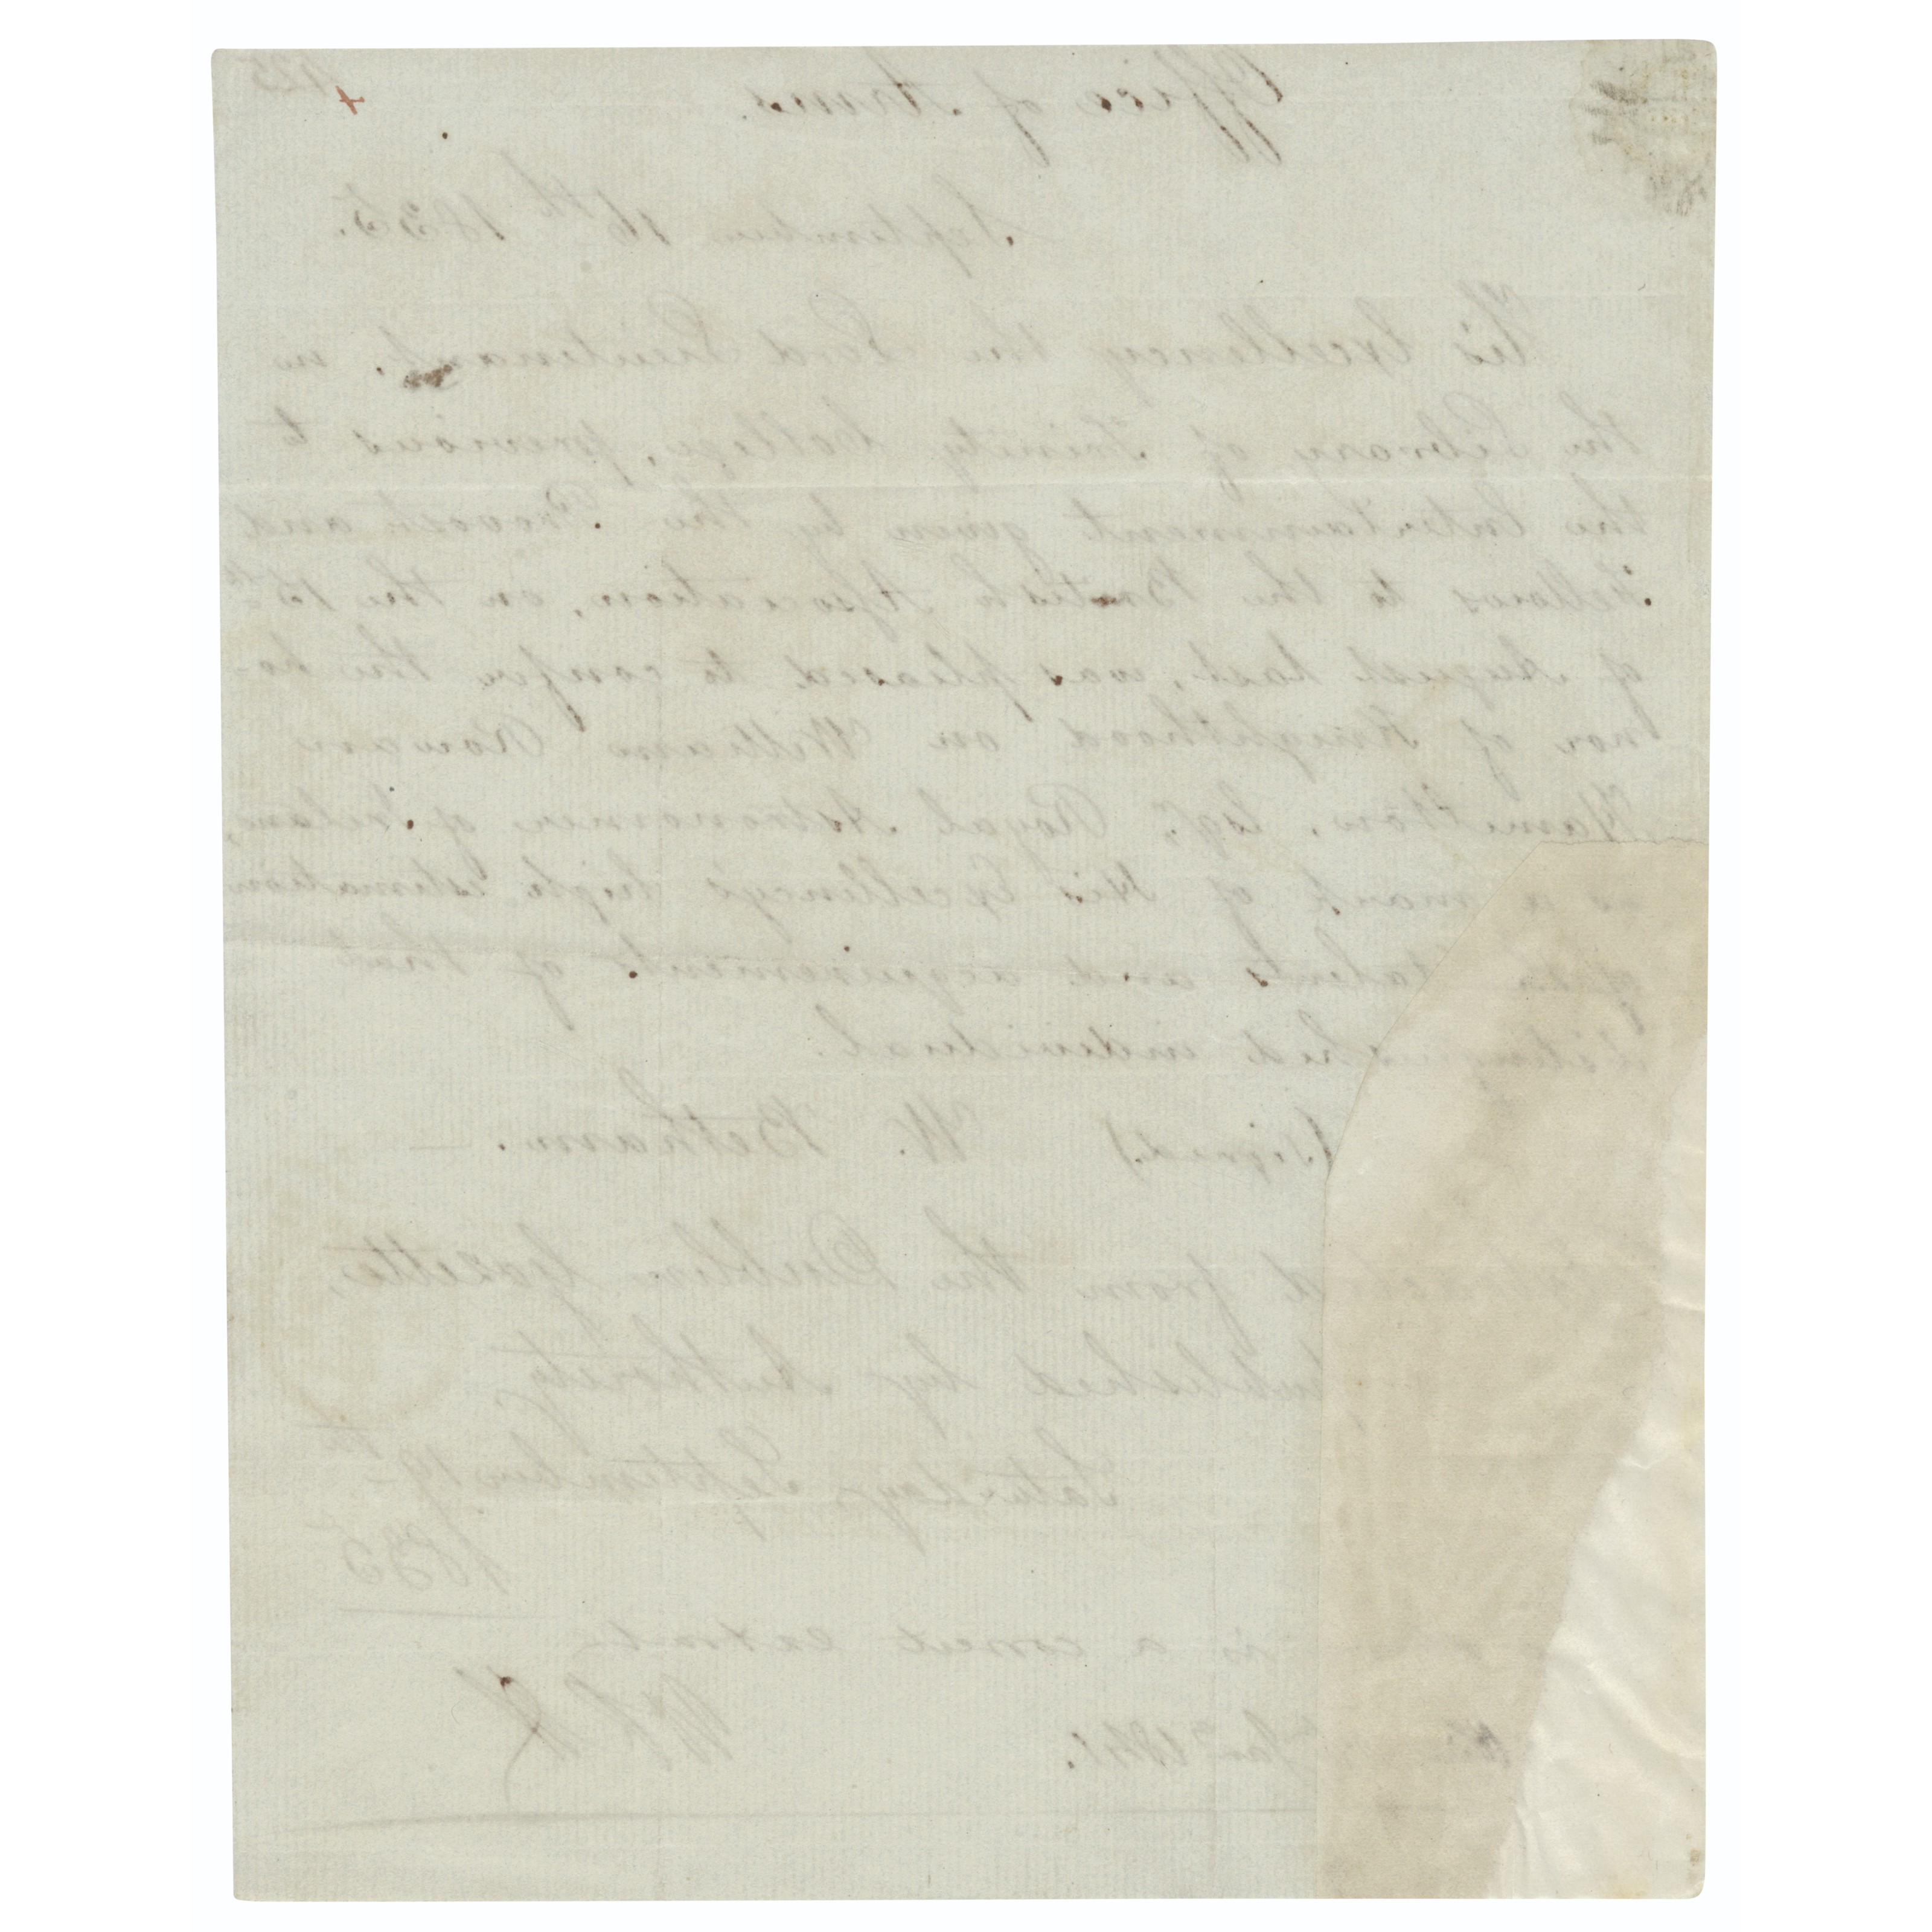 Office of Arms.
September 16th 1835.
His Excellency the Lord Lieutenant, in
the Library of Trinity College, previous to
the Entertainment given by the Provost and
Fellows to the British Association, on the 15th
of August last, was pleased to confer the ho-
nor of Knighthood on William Rowan
Hamilton, Esqr, Royal Astronomer of Ireland,
as a mark of His Excellency's high estimation
of the talents and acquirements of that
distinguished individual.
(signed) W. Betham. —
from the Dublin Gazette,
published by Authority
Saturday, September 19th
1835
is a correct extract
Jany 1841. WRH